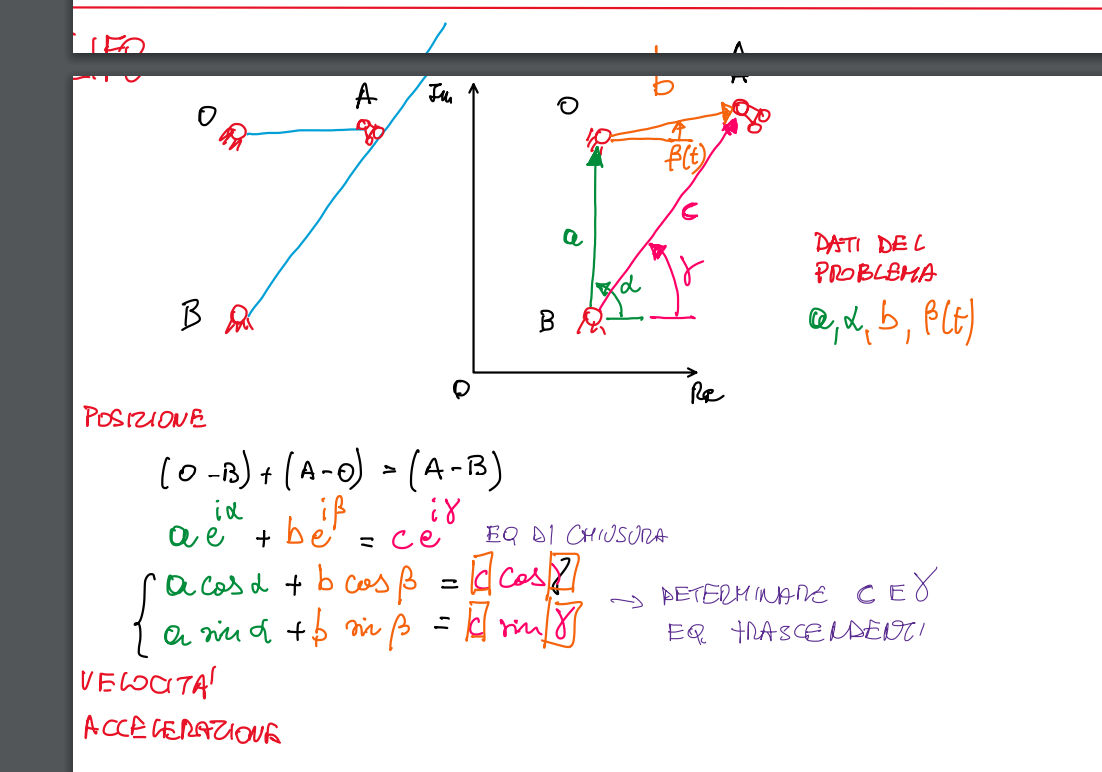 O A
B
Im
O b A
β(t)
a c
α γ
B
O Re
DATI DEL
PROBLEMA
a, α, b, β(t)
POSIZIONE
(O-B) + (A-O) = (A-B)
a e^{iα} + b e^{iβ} = c e^{iγ} EQ DI CHIUSURA
a cos α + b cos β = c cos γ
a sin α + b sin β = c sin γ
→ DETERMINARE C E γ
EQ. TRASCENDENTI
VELOCITA'
ACCELERAZIONE